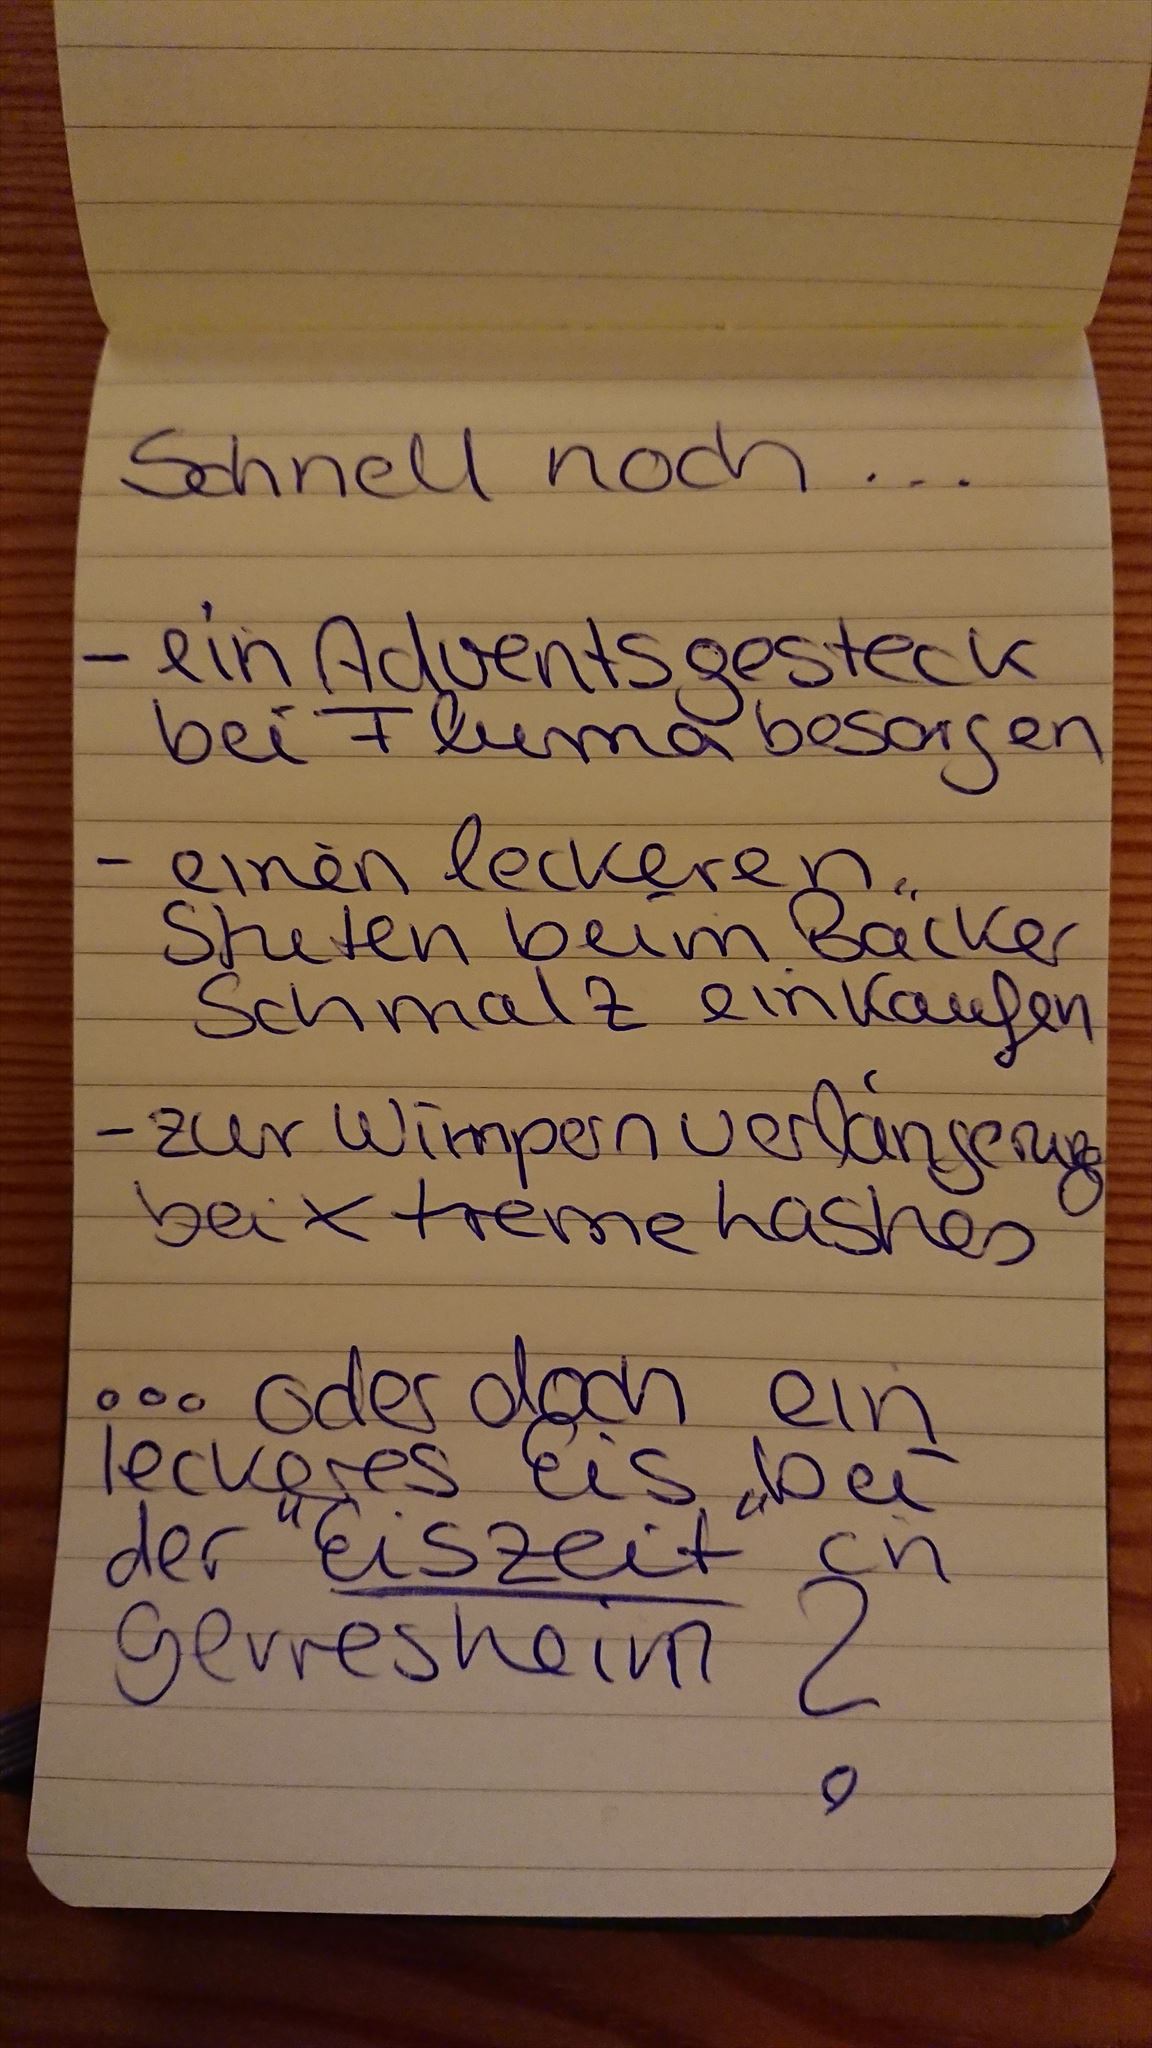 Schnell noch ...
- ein Adventsgesteck
bei Fluma besorgen
- einen leckeren
Stuten beim Bäcker
Schmalz einkaufen
- zur Wimpernverlängerung
bei Xtremehashes
... oder doch ein
leckeres Eis bei
der "Eiszeit" in
Gerresheim ?